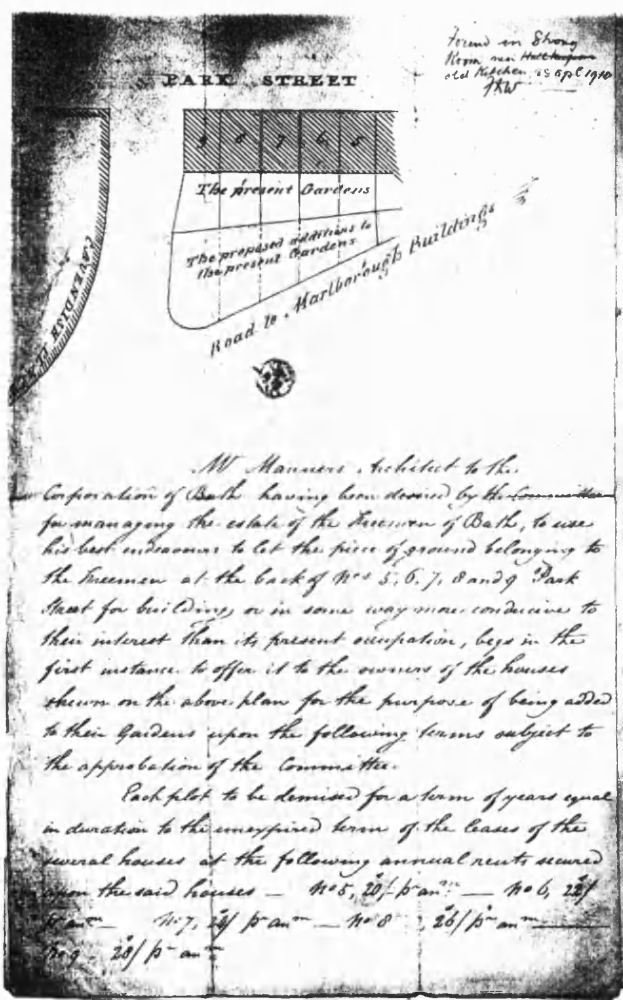 Found in Strong
Room near
old Kitchen 15 Apl 1910
PARK STREET
9 8 7 6 5
The present Gardens
The proposed additions to
the present Gardens
Road to Marlborough Buildings
CAVENDISH
Mr Manners Architect to the
Corporation of Bath having been desired by the Committee
for managing the estate of the Freemen of Bath, to use
his best endeavours to let the piece of ground belonging to
the Freemen at the back of Nos 5, 6, 7, 8 and 9 Park
Street for building, or in some way more conducive to
their interest than its present occupation, begs in the
first instance to offer it to the owners of the houses
shewn on the above plan for the purpose of being added
to their Gardens upon the following terms subject to
the approbation of the Committee.
Each plot to be demised for a term of years equal
in duration to the unexpired term of the leases of the
several houses at the following annual rents secured
upon the said houses — No 5, 20/ pr anm — No 6, 22/
pr anm — No 7, 24/ pr anm — No 8, 26/ pr anm
No 9 - 28/ pr anm